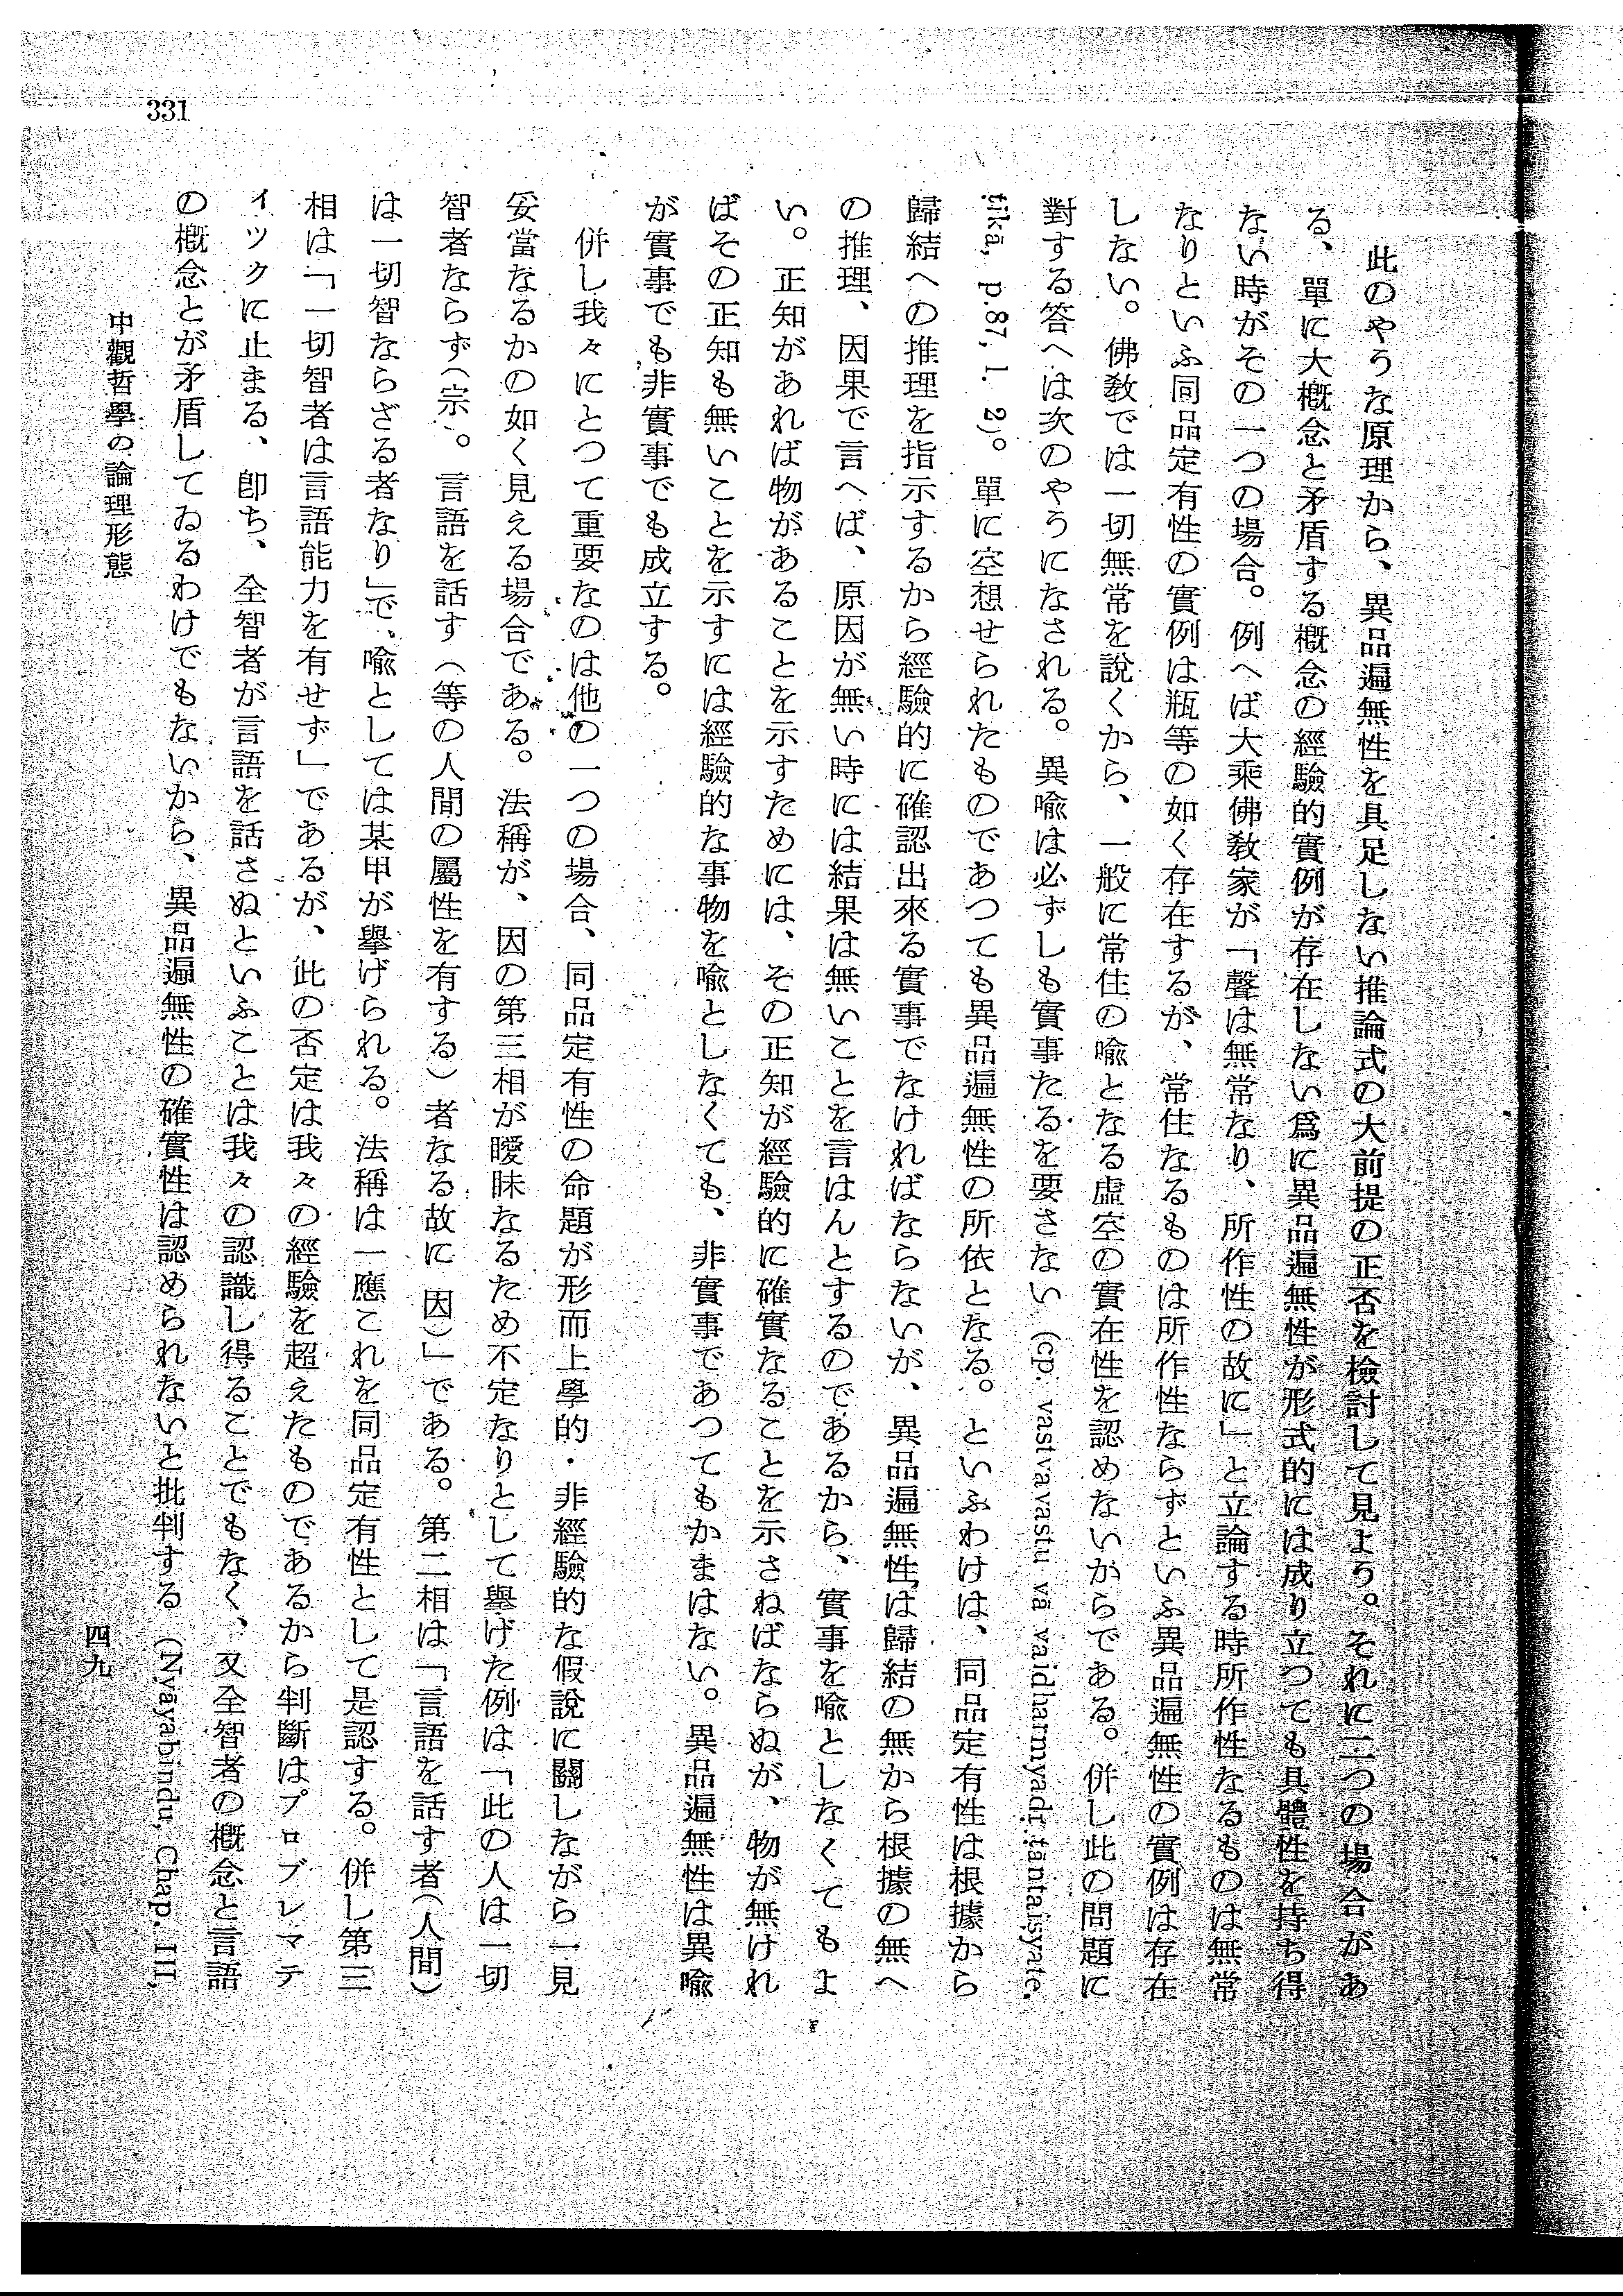 331
此のやうな原理から、異品遍無性を具足しない推論式の大前提の正否を檢討して見よう。それに二つの場合があ
る、單に大概念と矛盾する概念の經驗的實例が存在しない爲に異品遍無性が形式的には成り立つても具體性を持ち得
ない時がその一つの場合。例へば大乘佛敎家が「聲は無常なり、所作性の故に」と立論する時所作性なるものは無常
なりといふ同品定有性の實例は瓶等の如く存在するが、常住なるものは所作性ならずといふ異品遍無性の實例は存在
しない。佛敎では一切無常を說くから、一般に常住の喩となる虛空の實在性を認めないからである。併し此の問題に
對する答へは次のやうになされる。異喩は必ずしも實事たるを要さない (cp. vastvavastu vā vaidharmyadṛṣṭāntaiṣyate.
ṭīkā, p.87, l. 2)。單に空想せられたものであつても異品遍無性の所依となる。といふわけは、同品定有性は根據から
歸結への推理を指示するから經驗的に確認出來る實事でなければならないが、異品遍無性は歸結の無から根據の無へ
の推理、因果で言へば、原因が無い時には結果は無いことを言はんとするのであるから、實事を喩としなくてもよ
い。正知があれば物があることを示すためには、その正知が經驗的に確實なることを示さねばならぬが、物が無けれ
ばその正知も無いことを示すには經驗的な事物を喩としなくても、非實事であつてもかまはない。異品遍無性は異喩
が實事でも非實事でも成立する。
併し我々にとつて重要なのは他の一つの場合、同品定有性の命題が形而上學的・非經驗的な假說に關しながら一見
妥當なるかの如く見える場合である。法稱が、因の第三相が曖昧なるため不定なりとして擧げた例は「此の人は一切
智者ならず（宗）。言語を話す（等の人間の屬性を有する）者なる故に（因）」である。第二相は「言語を話す者（人間）
は一切智ならざる者なり」で、喩としては某甲が擧げられる。法稱は一應これを同品定有性として是認する。併し第三
相は「一切智者は言語能力を有せず」であるが、此の否定は我々の經驗を超えたものであるから判斷はプロブレマテ
ィックに止まる、卽ち、全智者が言語を話さぬといふことは我々の認識し得ることでもなく、又全智者の概念と言語
の概念とが矛盾してゐるわけでもないから、異品遍無性の確實性は認められないと批判する (Nyāyabindu, Chap. III,
中觀哲學の論理形態
四九